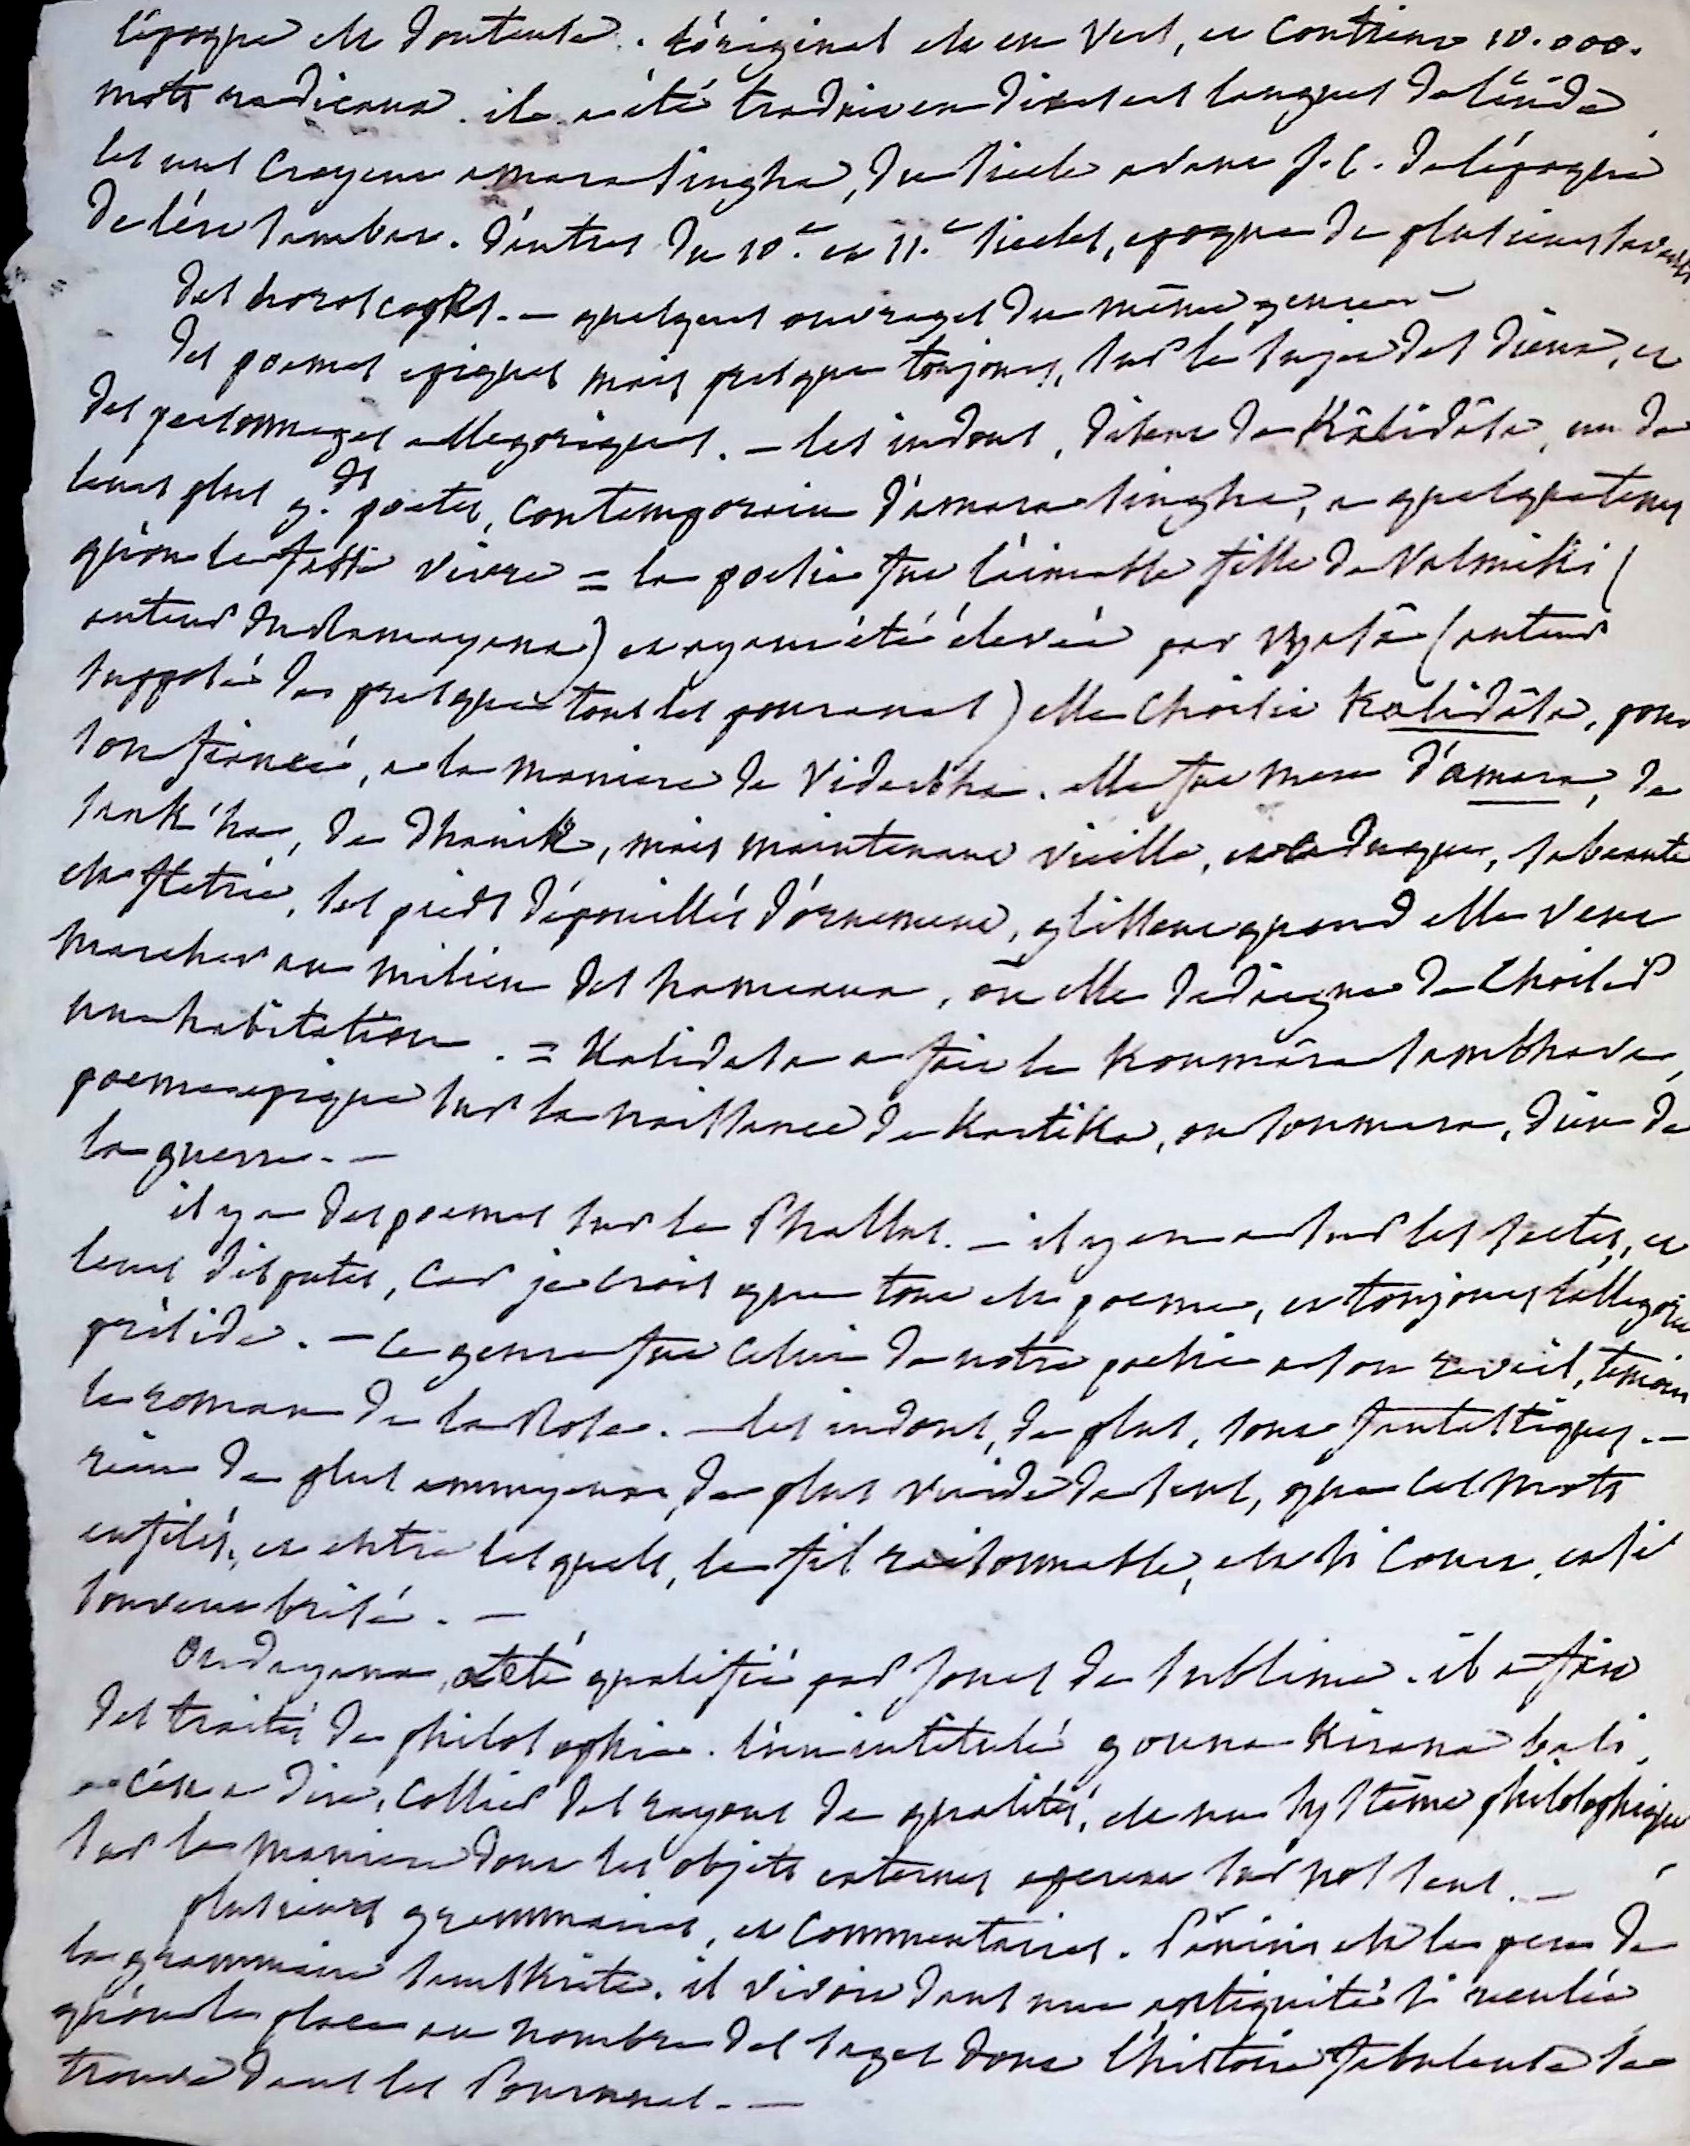 l'époque est douteuse. l'original est en vers, et contient 10.000.
mots radicaux. il a été traduit en diverses langues de l'inde
les uns croyent amara singha, du siecle avant J. C. de l'époque
de l'ère sambar. d'autres du 10.e et 11.e siecles, epoque de plusieurs savants
des horoscopes. — quelques ouvrages du même genre —
des poemes epiques mais presque toujours, sur le sujet des dieux, et
des personnages allegoriques. — les indous, disent de Kâlidâsa, un de
leurs plus g.ds poetes, contemporain d'amara singha, a quelque tems
qu'on le fasse vivre = la poesie fut l'aimable fille de Valmiki (
auteur du Ramayana) et ayant été élevée par vyasâ (auteur
supposé de presque tous les pouranas) elle choisit Kalidâsa, pour
son fiancé, a la maniere de Viderbha. elle fut mere d'amara, de
sank'ha, de dhanik, mais maintenant vieille, et caduque, sa beauté
est flétrie, ses pieds dépouillés d'ornement, glissent quand elle veut
marcher au milieu des hameaux, où elle dedaigne de choisir
une habitation. = Kalidasa a fait le Koumâra sambhava,
poeme epique sur la naissance de Kartika, ou koumara, dieu de
la guerre. —
il y a des poemes sur le Phallus. — il y en a sur les sectes, et
leurs disputes, car je crois que tout est poeme, et toujours l'allegorie
préside. — ce genre fut celui de notre poesie a son reveil, temoin
le roman de la Rose. — les indous, de plus, sont fantastiques. —
rien de plus ennuyeux, de plus vuide de sens, que ces mots
enfilés, et entre lesquels, le fil raisonnable, est si court, et si
souvent brisé. —
Oudayana, a été qualifié par Jones de sublime. il a fait
des traités de philosophie. l'un intitulé gouna Kirana bali,
c'est a dire, collier des rayons de qualités, est un systême philosophique
sur la maniere dont les objets externes operent sur nos sens. —
plusieurs grammaires, et commentaires. Pânini est le pere de
la grammaire sanskrite. il vivoit dans une antiquité si reculée
qu'on le place au nombre des sages dont l'histoire fabuleuse se
trouve dans les Pouranas. —